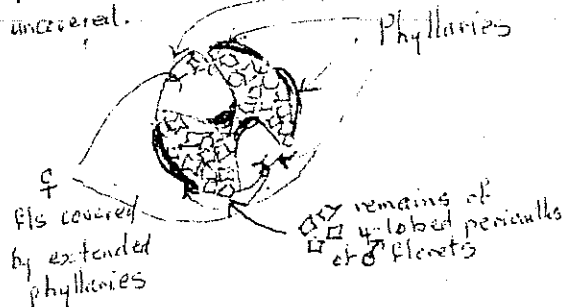 uncovered.
Phyllaries
♀
fls covered
by extended
phyllaries
remains of
4-lobed perianths
of ♂ florets